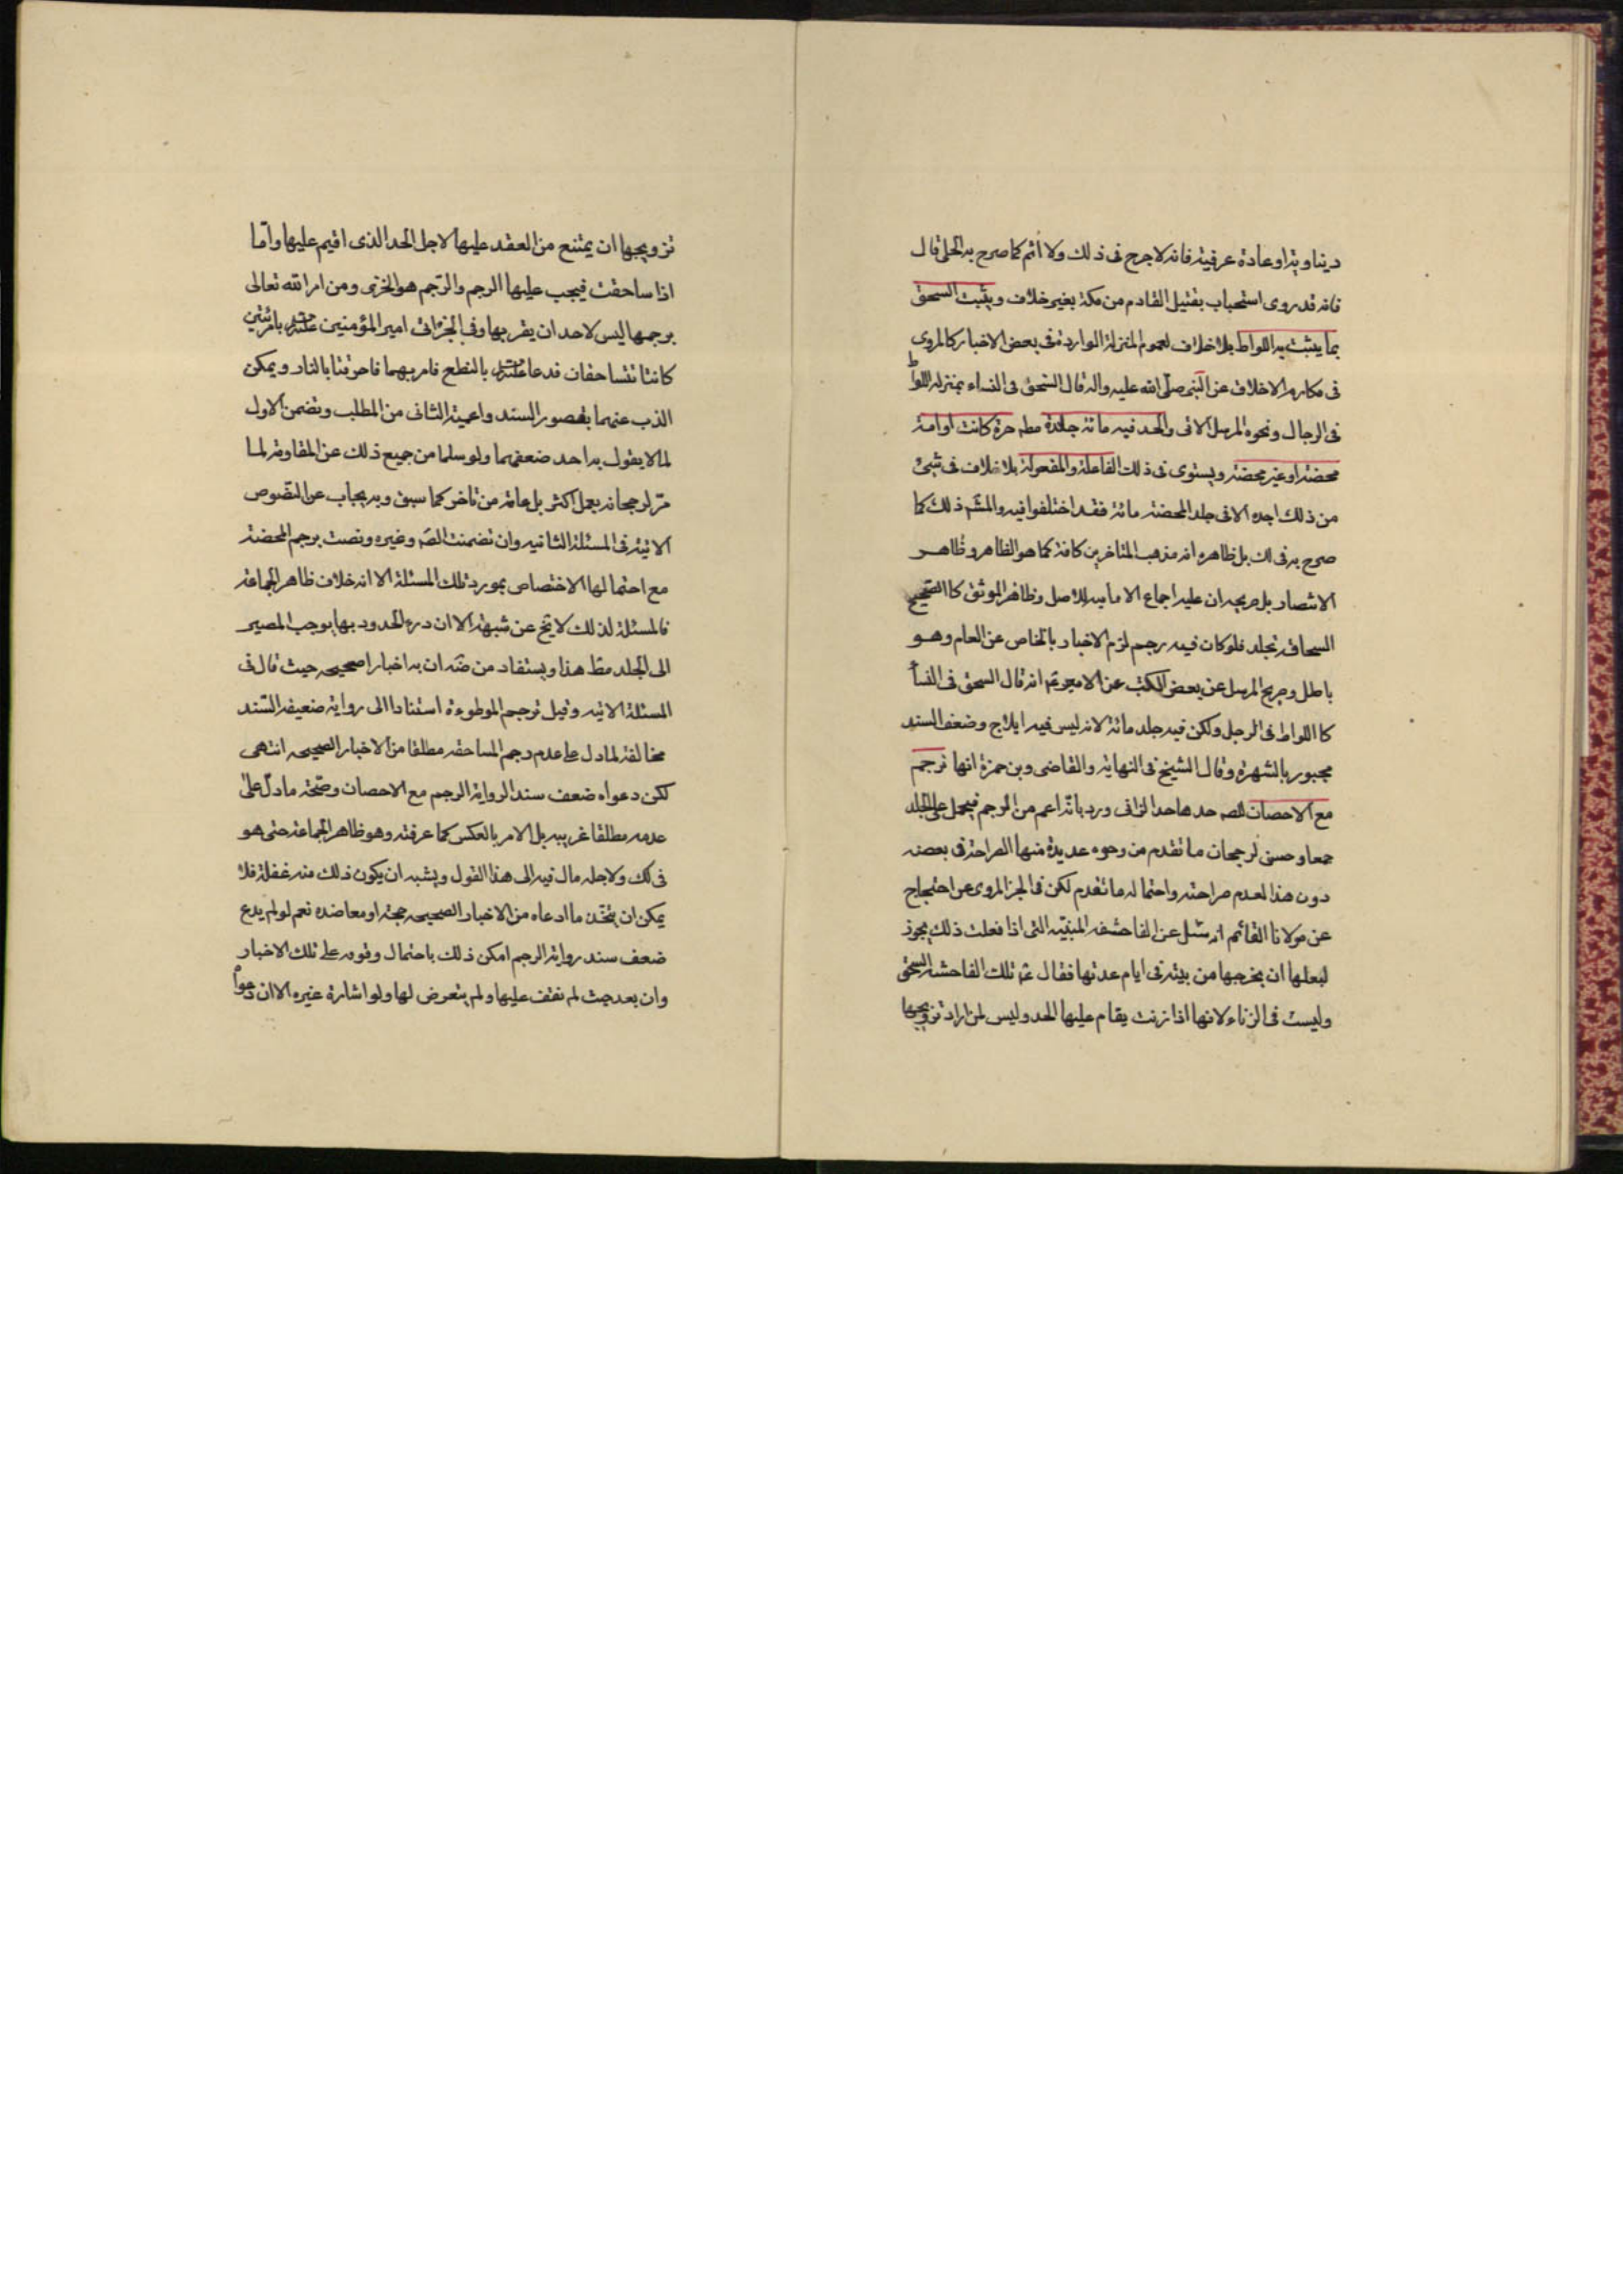 ديناوية او عادة عرفية فانه لا حرج فى ذلك ولا اثم كما صرح به الحلى قال
فانه قد روى استحباب تقبيل القادم من مكة بغير خلاف ويثبت السحق
بما يثبت به اللواط بلا خلاف لعموم المنزلة الواردة فى بعض الاخبار كالمروى
فى مكارم الاخلاق عن النبى صلى الله عليه واله قال السحق فى النساء بمنزلة اللواط
فى الرجال ونحوه المرسل الاتى والحد فيه مائة جلدة مطه حرة كانت او امة
محصنة او غير محصنة ويستوى فى ذلك الفاعلة والمفعولة بلا خلاف فى شئ
من ذلك اجده الا فى جلد المحصنة مائة فقد اختلفوا فيه والمشم ذلك كما
صرح به فى لك بل ظاهره انه مذهب المتاخرين كافة كما هو الظاهر وظاهر
الانتصار بل صريحه ان عليه اجماع الامامية للاصل وظاهر الموثق كالصحيح
السحاقة تجلد فلو كان فيه رجم لزم الاخبار بالخاص عن العام وهو
باطل وصريح المرسل عن بعض الكتب عن الامير ع انه قال السحق فى النسآ
كاللواط فى الرجل ولكن فيه جلد مائة لانه ليس فيه ايلاج وضعف السند
مجبور بالشهرة وقال الشيخ فى النهاية والقاضى وبن حمزة انها ترجم
مع الاحصان للصه حدها حد الزانى ورد بانه اعم من الرجم فيحمل على الجلد
جمعا وحسن لرجحان ما تقدم من وجوه عديدة منها الصراحة فى بعضه
دون هذا لعدم صراحته واحتماله ما تقدم لكن فى الخبر المروى عن احتجاج
عن مولانا القائم انه سئل عن الفاحشة المبينة التى اذا فعلت ذلك يجوز
لبعلها ان يخرجها من بيته فى ايام عدتها فقال ع تلك الفاحشة السحق
وليست فى الزناء لانها اذا زنت يقام عليها الحد وليس لمن اراد تزويجها
تزويجها ان يمتنع من العقد عليها لاجل الحد الذى اقيم عليها واما
اذا ساحقت فيجب عليها الرجم والرجم هو الخزى ومن امر الله تعالى
برجمها ليس لاحد ان يقربها وفى الخبر اتى امير المؤمنين بامرئتين
كانتا تتساحقان فدعا بالنطع فامر بهما فاحرقتا بالنار ويمكن
الذب عنهما بقصور السند واعمية الثانى من المطلب وتضمن الاول
لما لا يقول به احد ضعفهما ولو سلما من جميع ذلك عن المقاومة لما
مر لرجحانه بعمل اكثر بل عامة من تاخر كما سبق وبه يجاب عن النصوص
الاتية فى المسئلة الثانية وان تضمنت الصه وغيره ونصت برجم المحصنة
مع احتمالها الاختصاص بمورد تلك المسئلة الا انه خلاف ظاهر الجماعة
فالمسئلة لذلك لا يخ عن شبهة الا ان درء الحدود بها يوجب المصير
الى الجلد مطا هذا ويستفاد من ضه ان به اخبارا صحيحه حيث قال فى
المسئلة الاتيه وقيل ترجم الموطوءة استنادا الى رواية ضعيفة السند
مخالفة لمادل على عدم رجم المساحقه مطلقا من الاخبار الصحيحه انتهى
لكن دعواه ضعف سند الرواية الرجم مع الاحصان وصحة ما دل على
عدمه مطلقا غريبه بل الامر بالعكس كما عرفته وهو ظاهر الجماعة حتى هو
فى لك ولاجله مال فيه الى هذا القول ويشبه ان يكون ذلك منه غفلة فلا
يمكن ان يتخذ ما ادعاه من الاخبار الصحيحه حجة او معاضده نعم لو لم يدع
ضعف سند رواية الرجم امكن ذلك باحتمال وقوفه على تلك الاخبار
وان بعد حيث لم نقف عليها ولم يتعرض لها ولو اشارة غيره الا ان دعواه